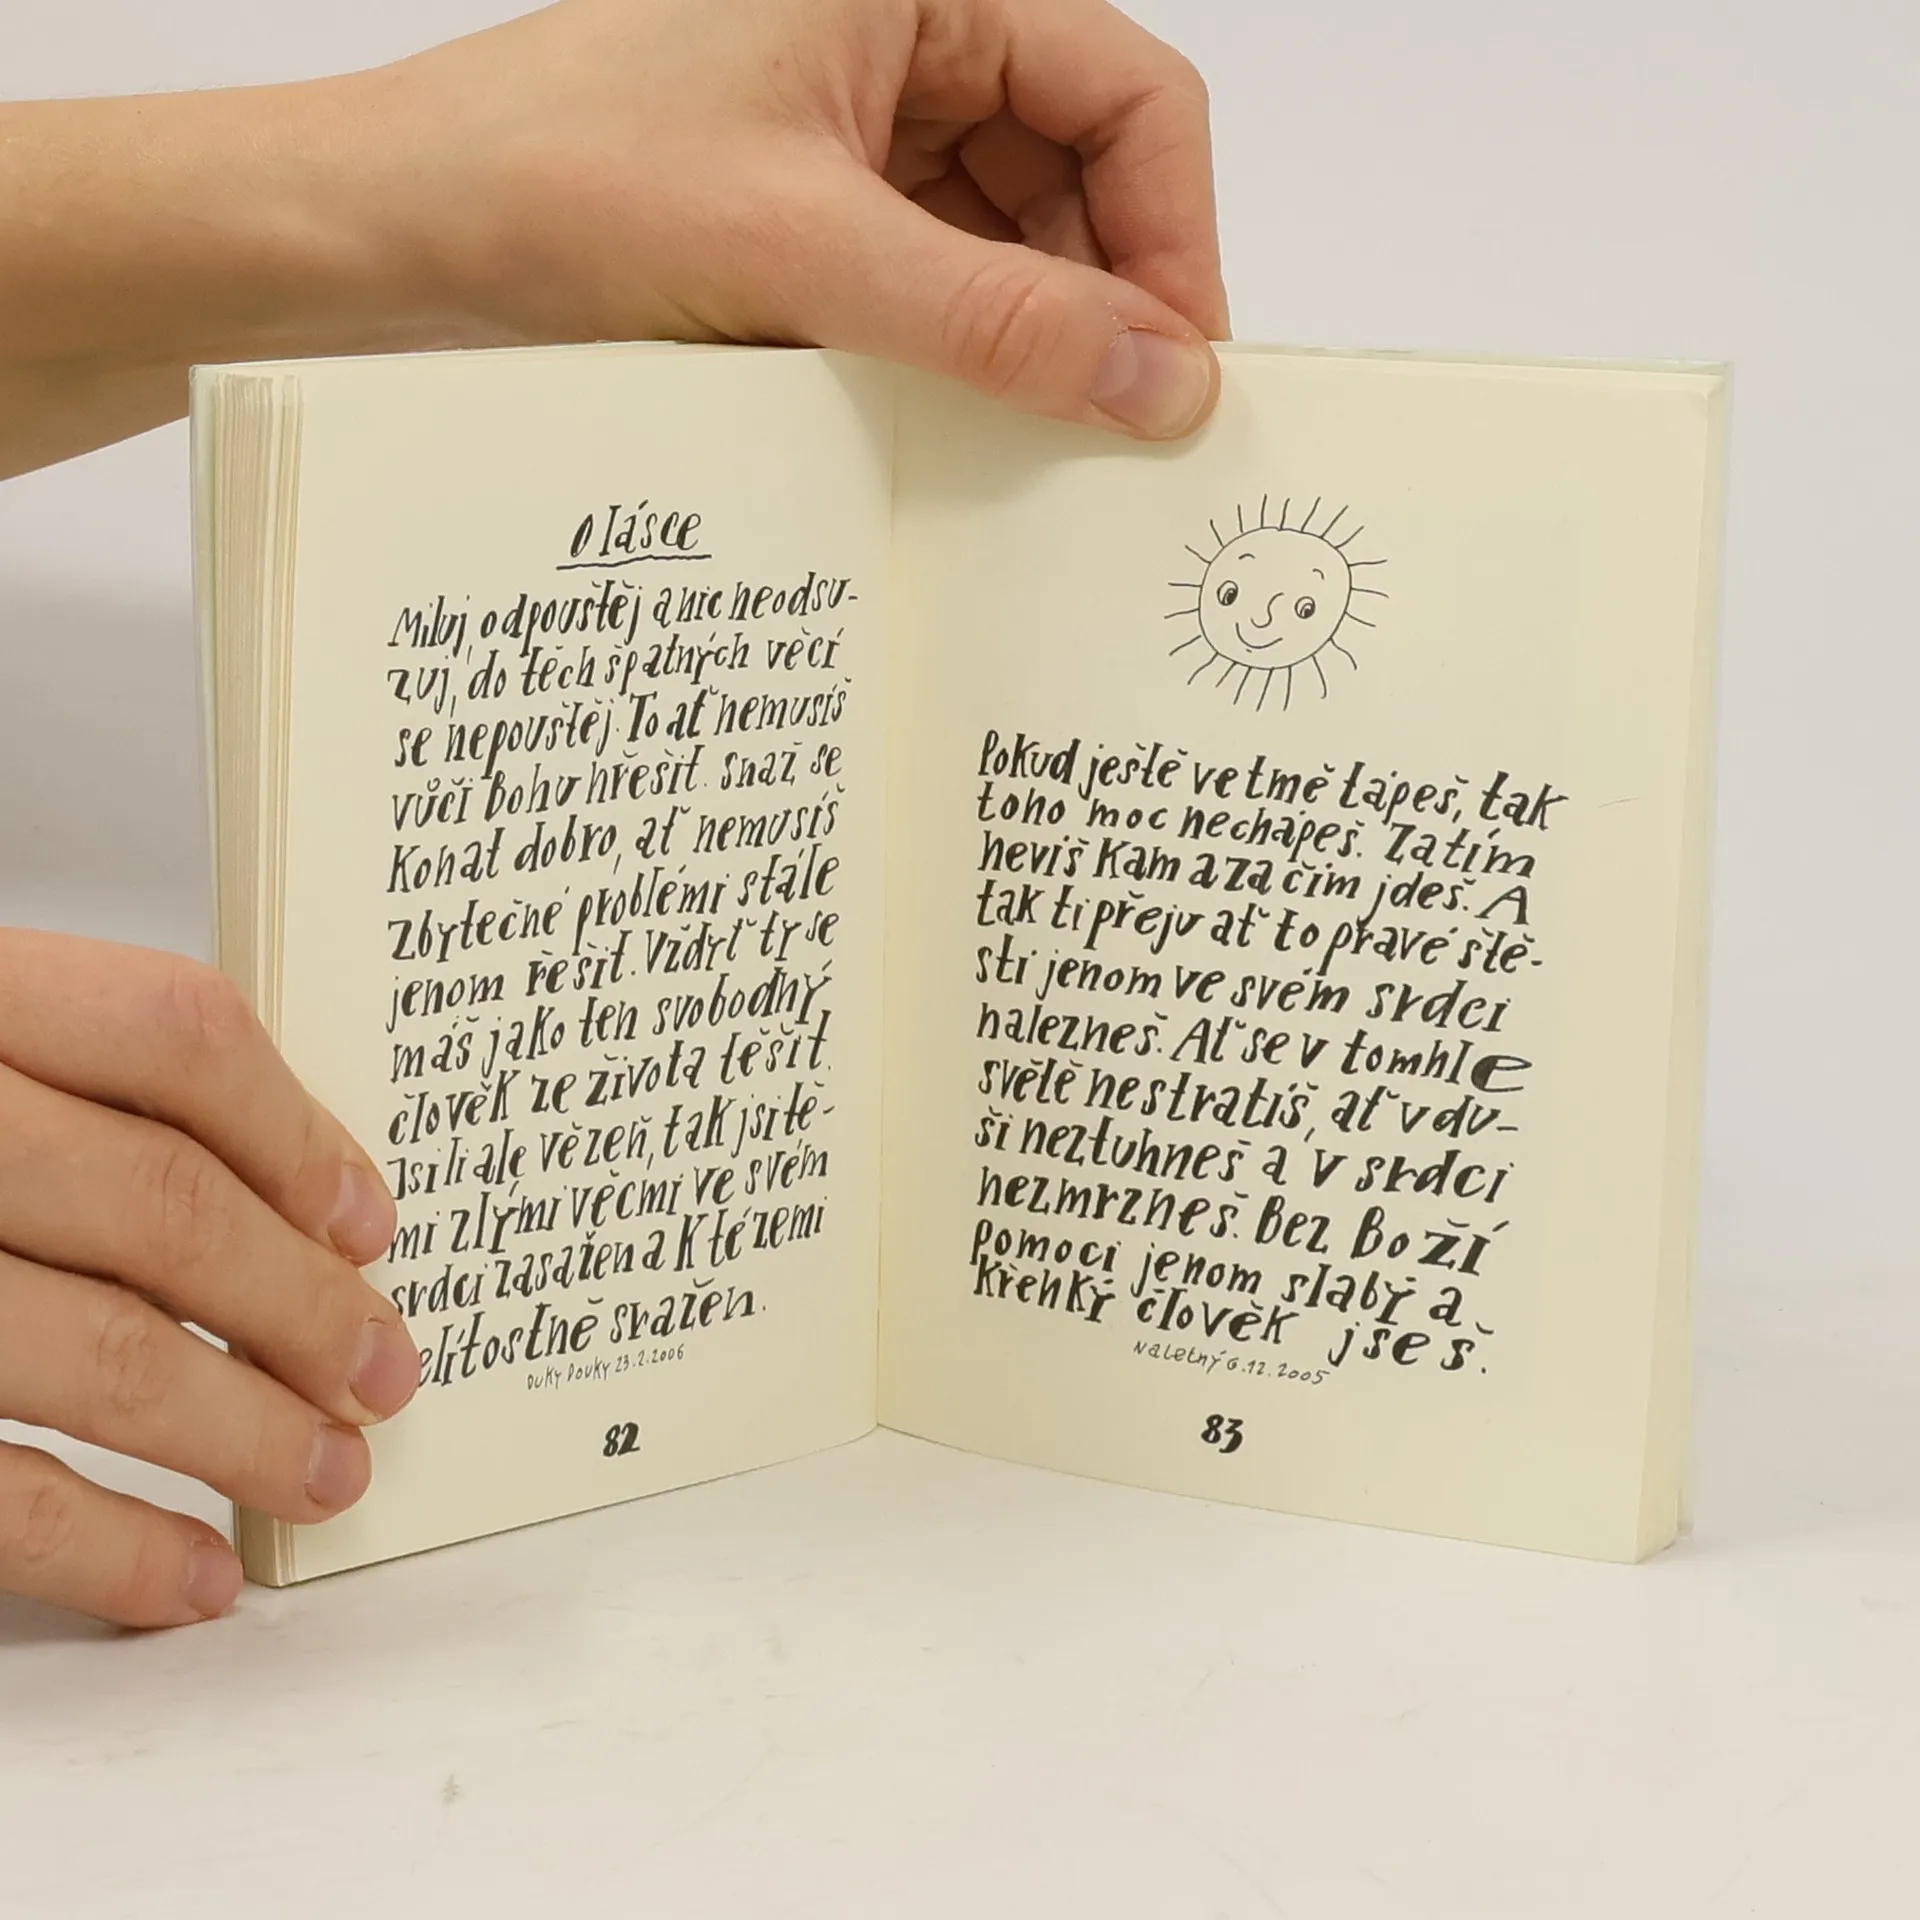 o lásce
Miluj, odpouštěj a nic neodsu-
zuj, do těch špatných věcí
se nepouštěj. To ať nemusíš
vůči Bohu hřešit. Snaž se
Konat dobro, ať nemusíš
zbytečné problémi stále
jenom řešit. Vždyť ty se
máš jako ten svobodný
člověk ze života těšit.
Jsi li ale vězeň, tak jsi tě-
mi zlými věcmi ve svém
srdci zasažen a k té zemi
elítostně sražen.
Duky Douky 23.2.2006
82
Pokud ještě ve tmě tápeš, tak
toho moc nechápeš. Zatím
nevíš kam a za čím jdeš. A
tak ti přeju ať to pravé ště-
stí jenom ve svém srdci
nalezneš. Ať se v tomhle
světě nestratíš, ať v du-
ši neztuhneš a v srdci
nezmrzneš. Bez Boží
pomoci jenom slabý a
křehký člověk jseš.
Naletný 6.12.2005
83